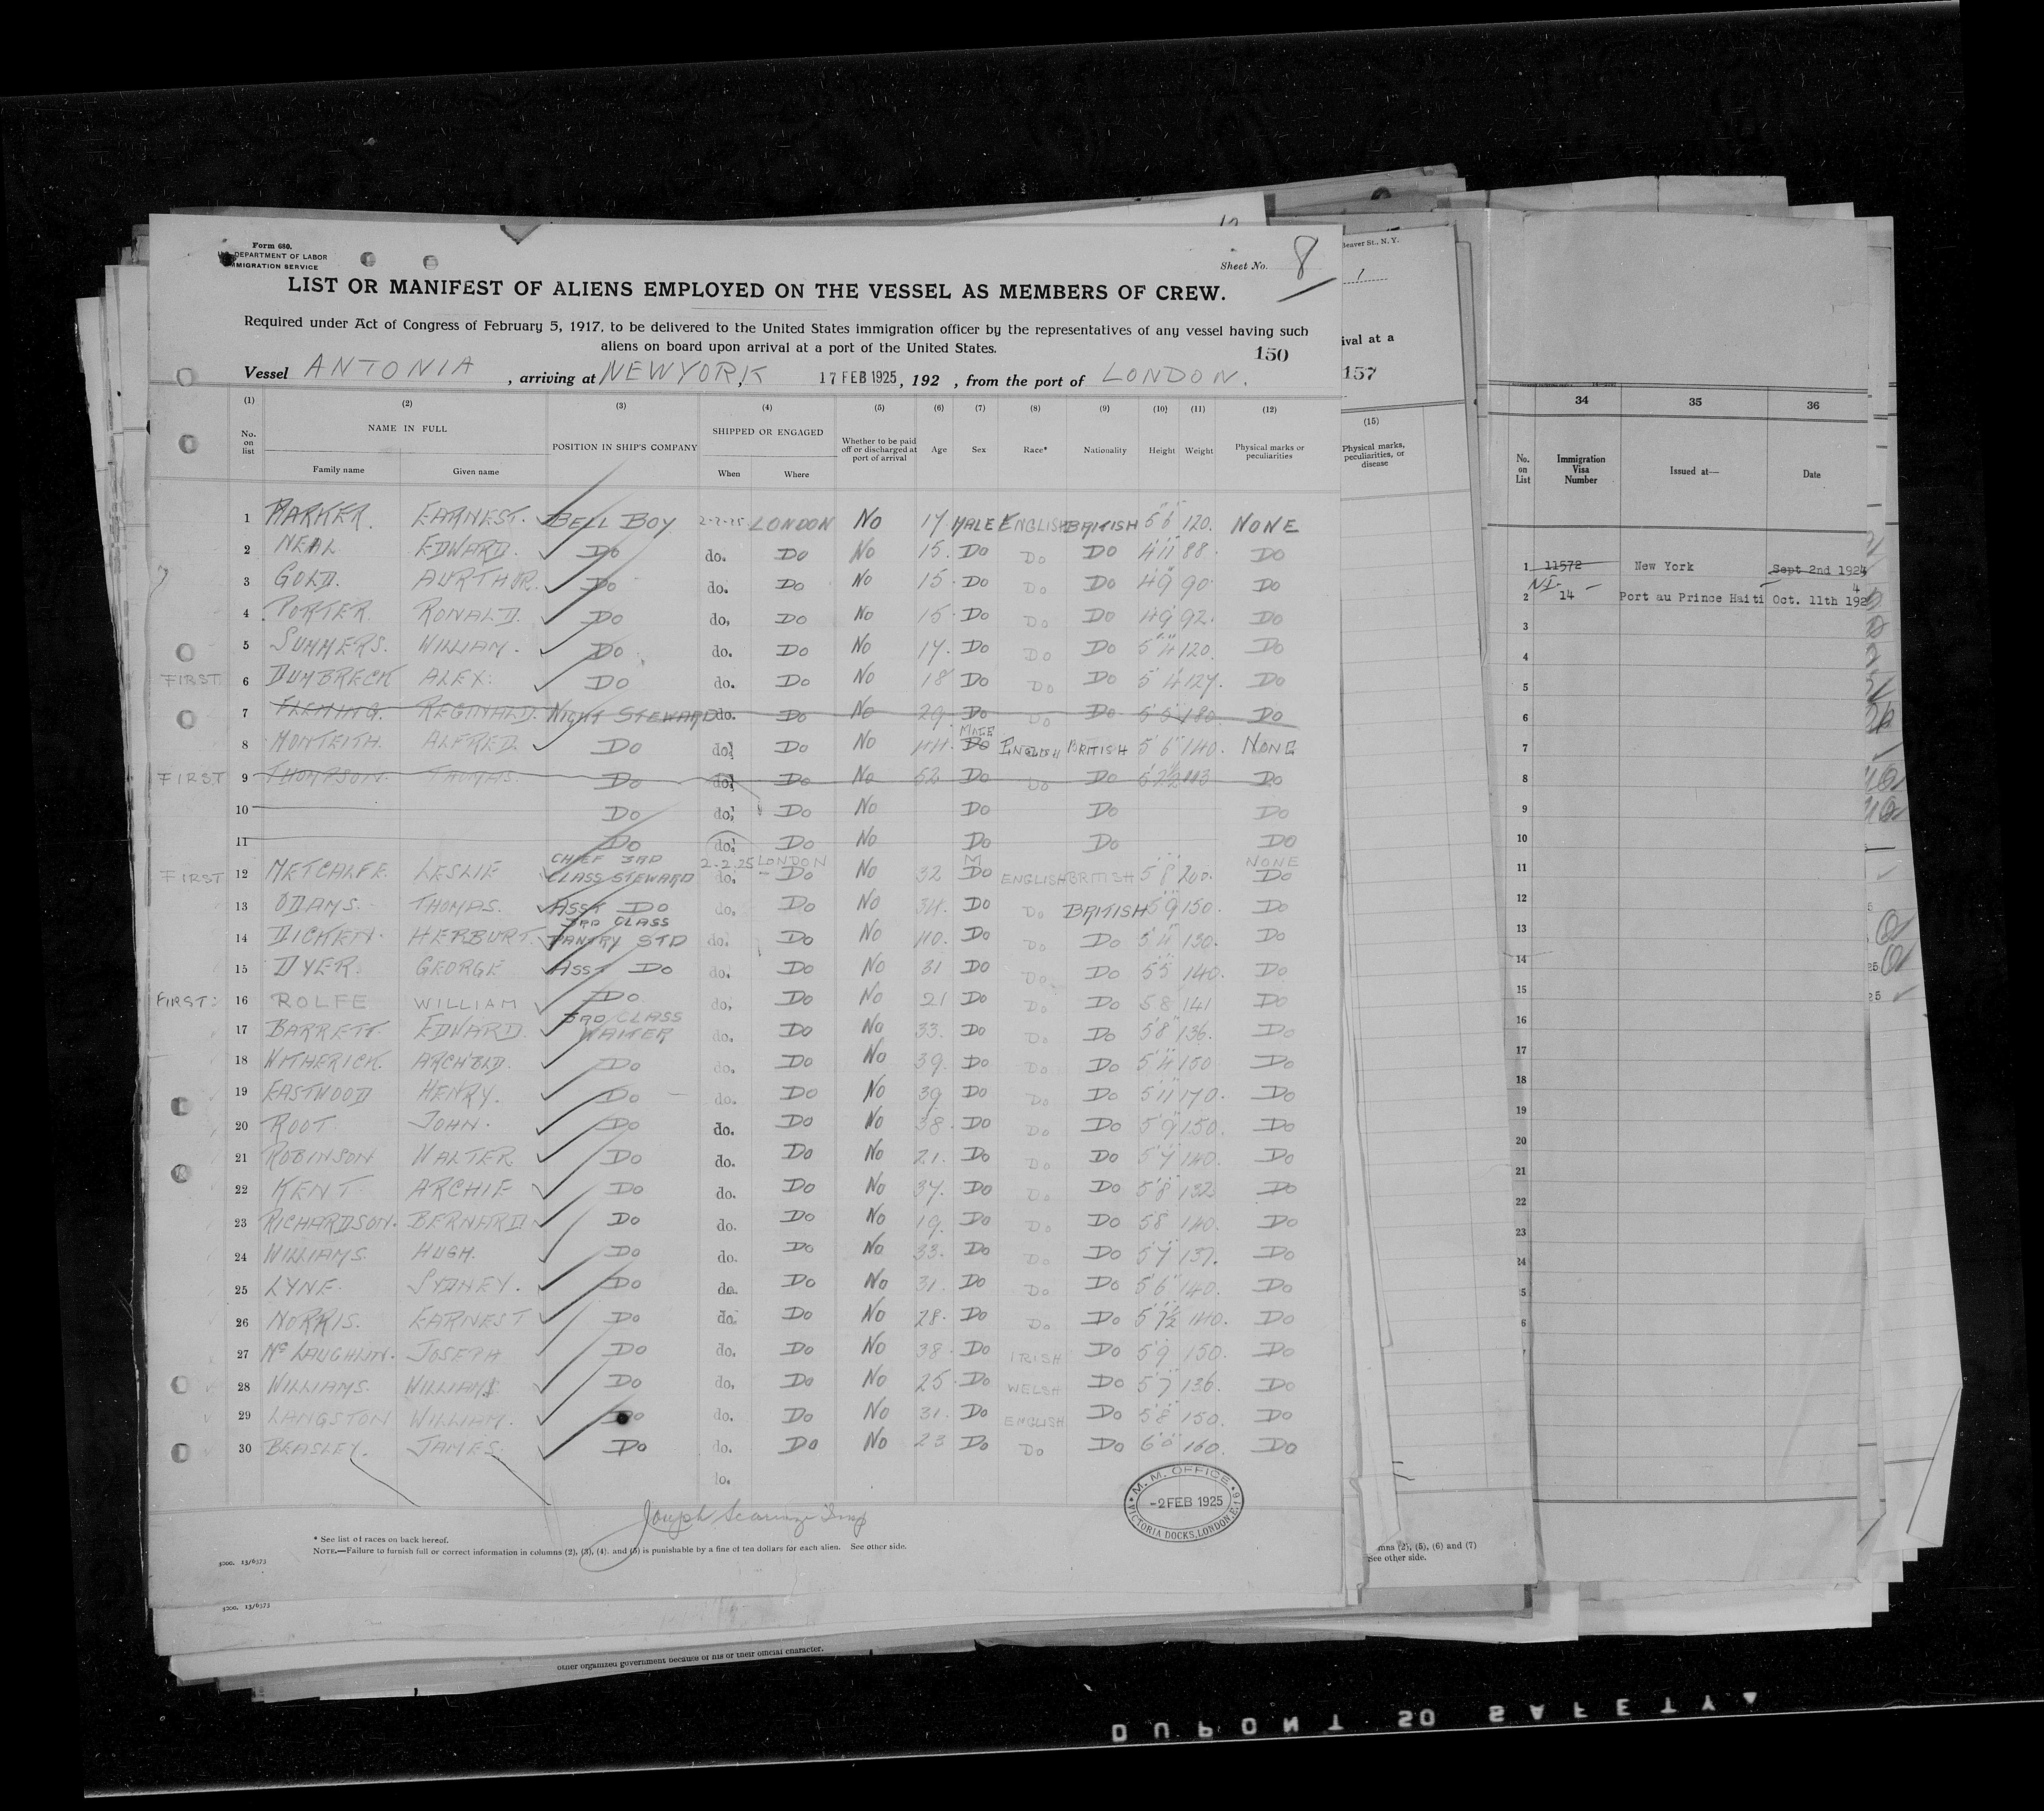 Form 680.
DEPARTMENT OF LABOR
IMMIGRATION SERVICE
Sheet No. 8
LIST OR MANIFEST OF ALIENS EMPLOYED ON THE VESSEL AS MEMBERS OF CREW.
Required under Act of Congress of February 5, 1917, to be delivered to the United States immigration officer by the representatives of any vessel having such
aliens on board upon arrival at a port of the United States.
150
Vessel ANTONIA, arriving at NEW YORK 17 FEB 1925, 192 , from the port of LONDON.
(1) (2) (3) (4) (5) (6) (7) (8) (9) (10) (11) (12)
No. on list NAME IN FULL Family name Given name POSITION IN SHIP'S COMPANY SHIPPED OR ENGAGED When Where Whether to be paid off or discharged at port of arrival Age Sex Race* Nationality Height Weight Physical marks or peculiarities
1 EARNEST. BELL BOY 2-2-25 LONDON No 17 MALE ENGLISH BRITISH 5'6" 120. NONE
2 NEAL EDWARD. Do do. Do No 15. Do Do Do 4'11 88. Do
3 GOLD. AURTHUR. Do do. Do No 15. Do Do Do 4'9 90. Do
4 PORTER RONALD. Do do. Do No 15. Do Do Do 4'9" 92. Do
5 SUMMERS. WILLIAM. Do do. Do No 17. Do Do Do 5'4" 120. Do
FIRST 6 DUMBRECK ALEX: Do do. Do No 18 Do Do Do 5'4 127. Do
7 FLEMING. REGINALD. NIGHT STEWARD do. Do No 29. Do Do Do 5'5" 180. Do
8 MONTEITH. ALFRED. Do do. Do No 44. Do MALE ENGLISH BRITISH 5'6" 140. NONE
FIRST 9 THOMPSON. THOMAS. Do do. Do No 52 Do Do Do 5'2½ 113 Do
10 Do do. Do No Do Do Do
11 Do do. Do No Do Do Do
CHIEF 3RD 2-2-25 LONDON M NONE
FIRST 12 METCALFE LESLIE CLASS STEWARD do. Do No 32 Do ENGLISH BRITISH 5'8 200. Do
13 ODAMS. THOMAS. ASST Do do. Do No 34. Do Do BRITISH 5'9 150. Do
3RD CLASS
14 DICKEN. HERBURT. PANTRY STD do. Do No 40. Do Do Do 5'4" 130. Do
15 DYER. GEORGE ASST Do do. Do No 31 Do Do Do 5'5 140. Do
FIRST: 16 ROLFE WILLIAM Do do. Do No 21 Do Do Do 5 8 141 Do
3RD CLASS
17 BARRETT. EDWARD. WAITER do. Do No 33. Do Do Do 5'8" 136. Do
18 WITHERICK. ARCH'BLD. Do do. Do No 39. Do Do Do 5'4 150 Do
19 EASTWOOD HENRY. Do do. Do No 39 Do Do Do 5'11 170. Do
20 ROOT JOHN. Do do. Do No 38. Do Do Do 5'9" 150. Do
21 ROBINSON WALTER Do do. Do No 21. Do Do Do 5'7 140. Do
22 KENT ARCHIE Do do. Do No 37. Do Do Do 5'8" 132 Do
23 RICHARDSON. BERNARD Do do. Do No 19. Do Do Do 5 8 140. Do
24 WILLIAMS. HUGH. Do do. Do No 33. Do Do Do 5'7 137. Do
25 LYNE. SYDNEY. Do do. Do No 31. Do Do Do 5'6" 140. Do
26 NORRIS. EARNEST Do do. Do No 28. Do Do Do 5'7½ 140. Do
27 McLAUGHLIN. JOSEPH Do do. Do No 38. Do IRISH Do 5'9 150. Do
28 WILLIAMS. WILLIAM Do do. Do No 25. Do WELSH Do 5'7 136. Do
29 LANGSTON WILLIAM. Do do. Do No 31. Do ENGLISH Do 5'8" 150. Do
30 BEASLEY. JAMES. Do do. Do No 23 Do Do Do 6'0 160. Do
lo.
M. M. OFFICE
-2 FEB 1925
VICTORIA DOCKS, LONDON, E.16
Joseph
* See list of races on back hereof.
NOTE.—Failure to furnish full or correct information in columns (2), (3), (4), and (5) is punishable by a fine of ten dollars for each alien. See other side.
5000. 13/6373
5000. 13/6373
other organized government because of his or their official character.
Beaver St., N. Y.
1
ival at a
157
(15)
Physical marks, peculiarities, or disease
mns (2), (5), (6) and (7)
See other side.
34 35 36
No. on List Immigration Visa Number Issued at— Date
1 11572 New York Sept 2nd 1924
NI-
2 14 Port au Prince Haiti Oct. 11th 192 4
3
4
5
6
7
8
9
10
11
12
13
14
15
16
17
18
19
20
21
22
23
24
5
6
DUPONT SO SAFETY